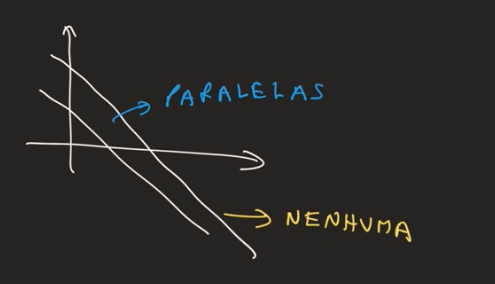 PARALELAS
NENHUMA